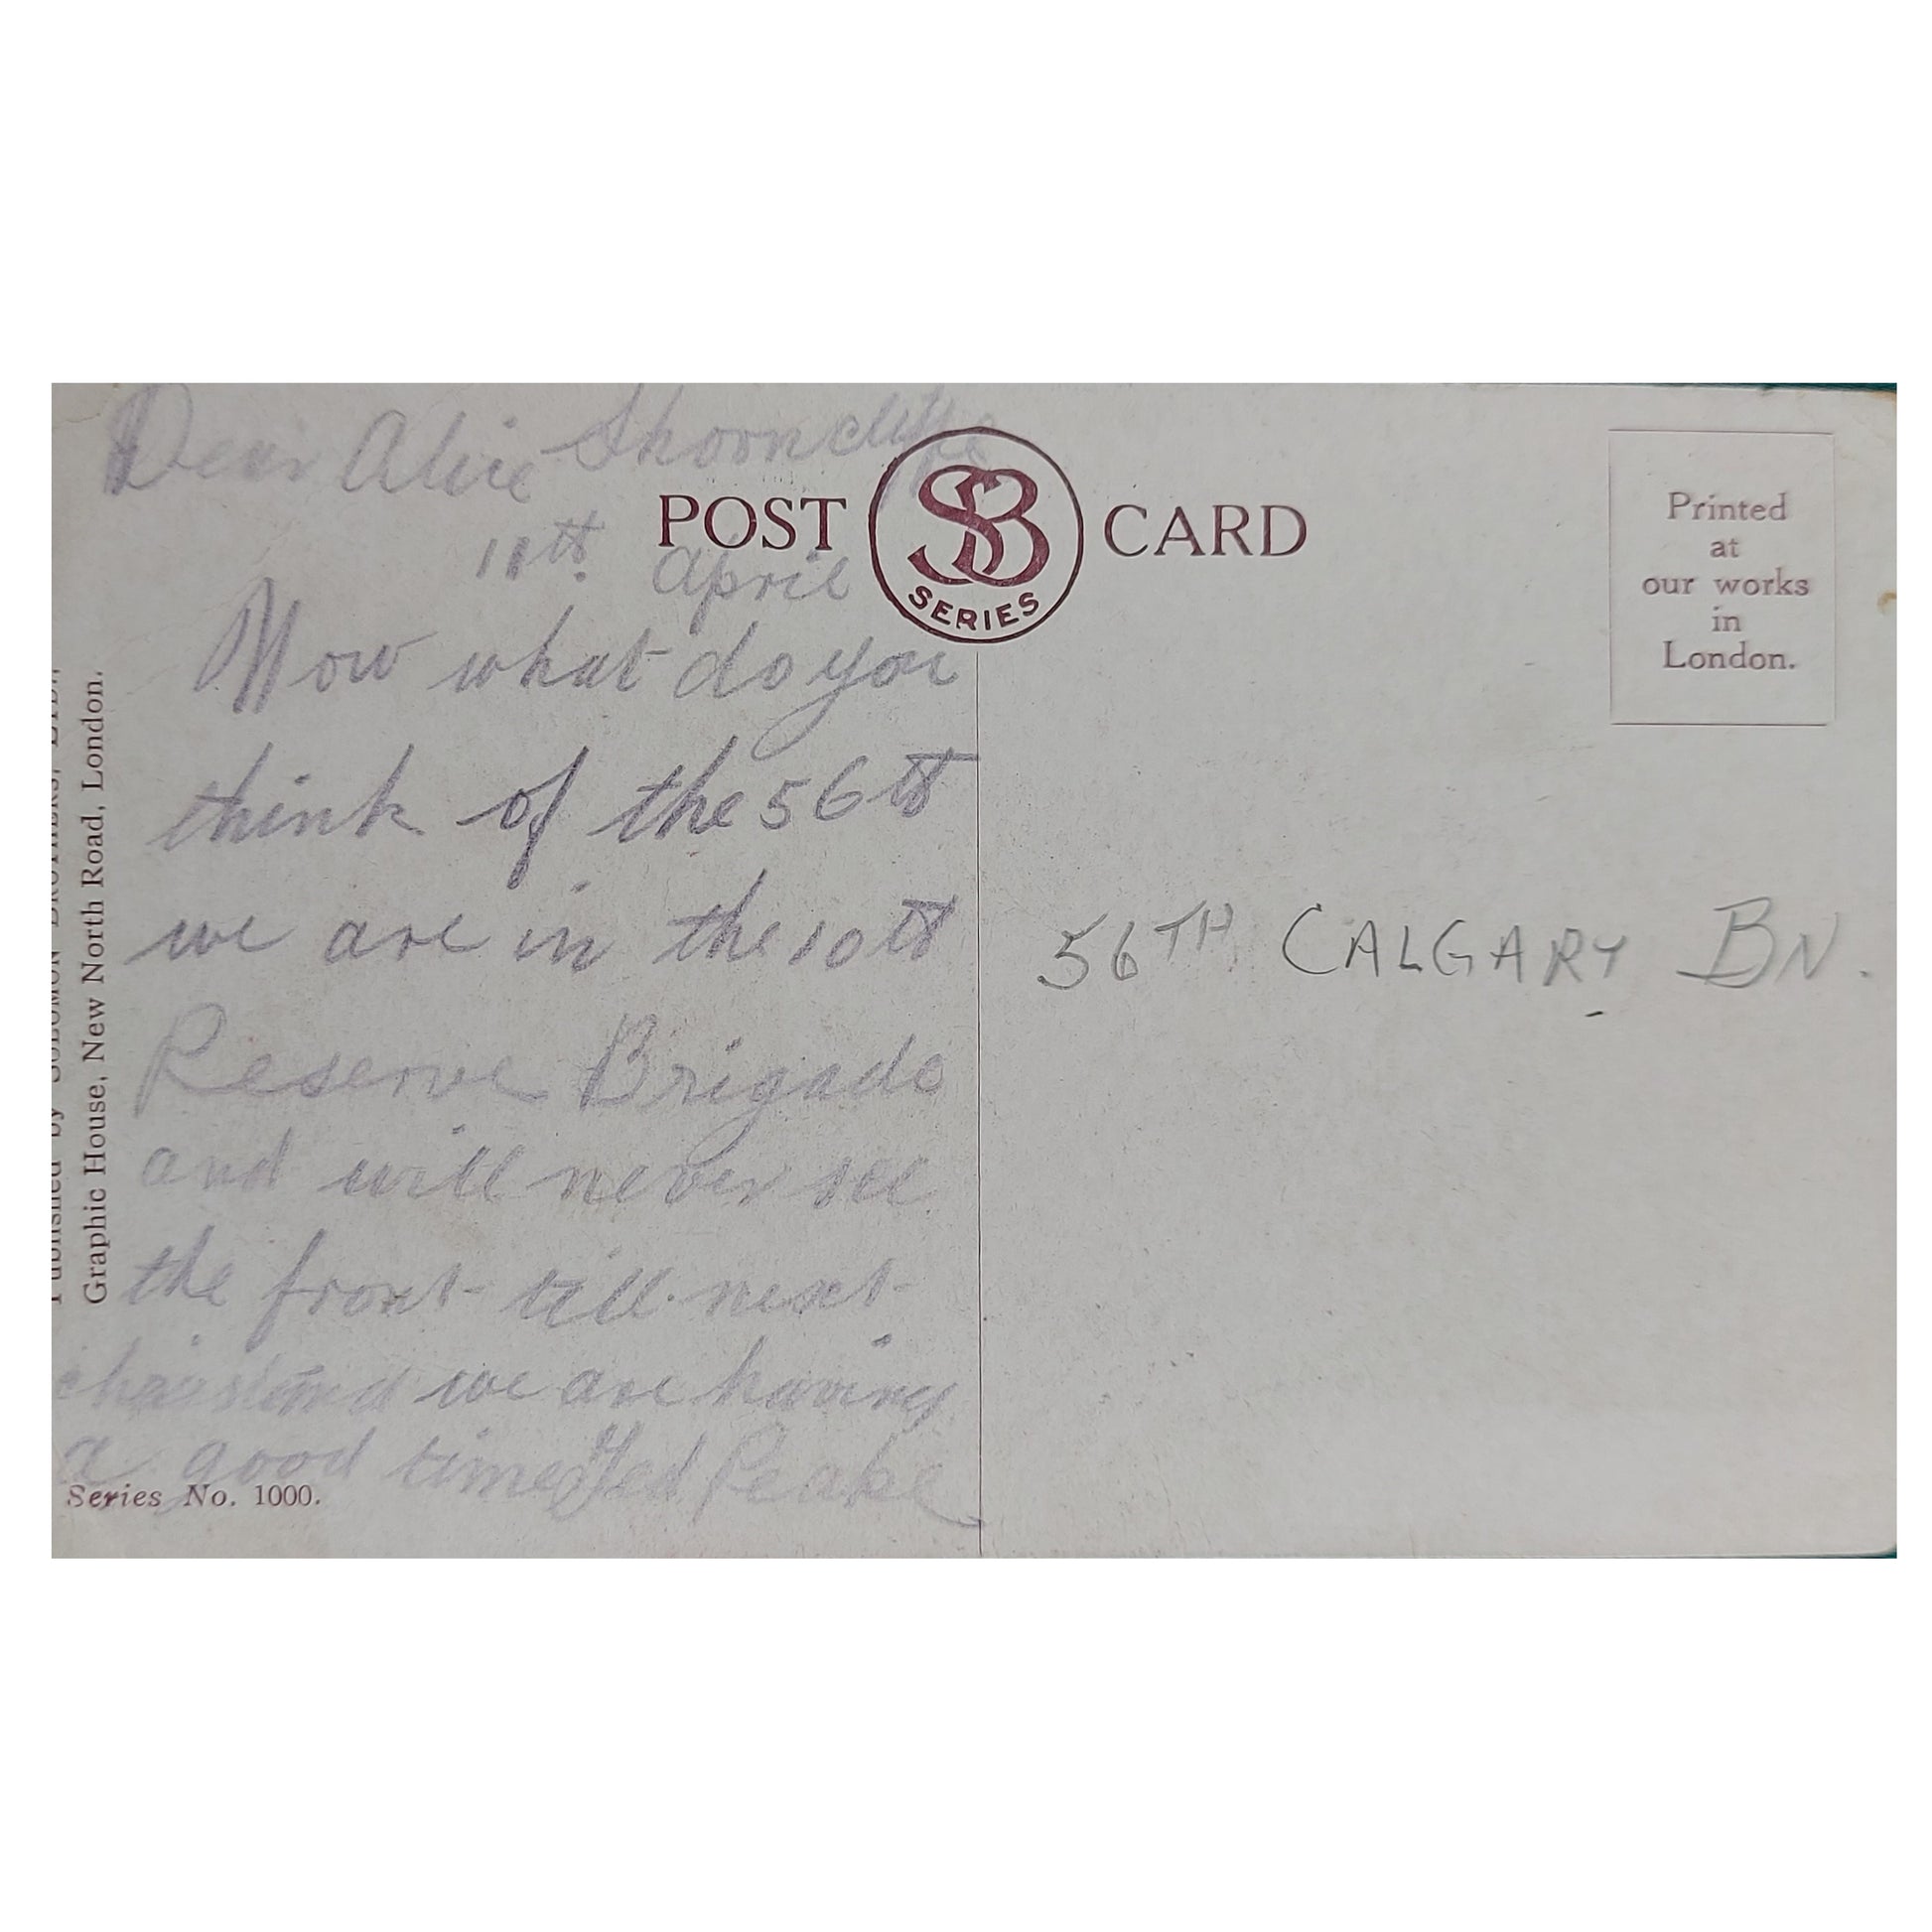 Dear Alice Shorncliffe
11th April
POST SB SERIES CARD
Printed
at
our works
in
London.
Now what do you
think of the 56th
we are in the 10th
Reserve Brigade
and will never see
the front till next
we are having
a good time Ted Peake
56TH CALGARY BN.
Published by SOLOMON BROTHERS, LTD.,
Graphic House, New North Road, London.
Series No. 1000.